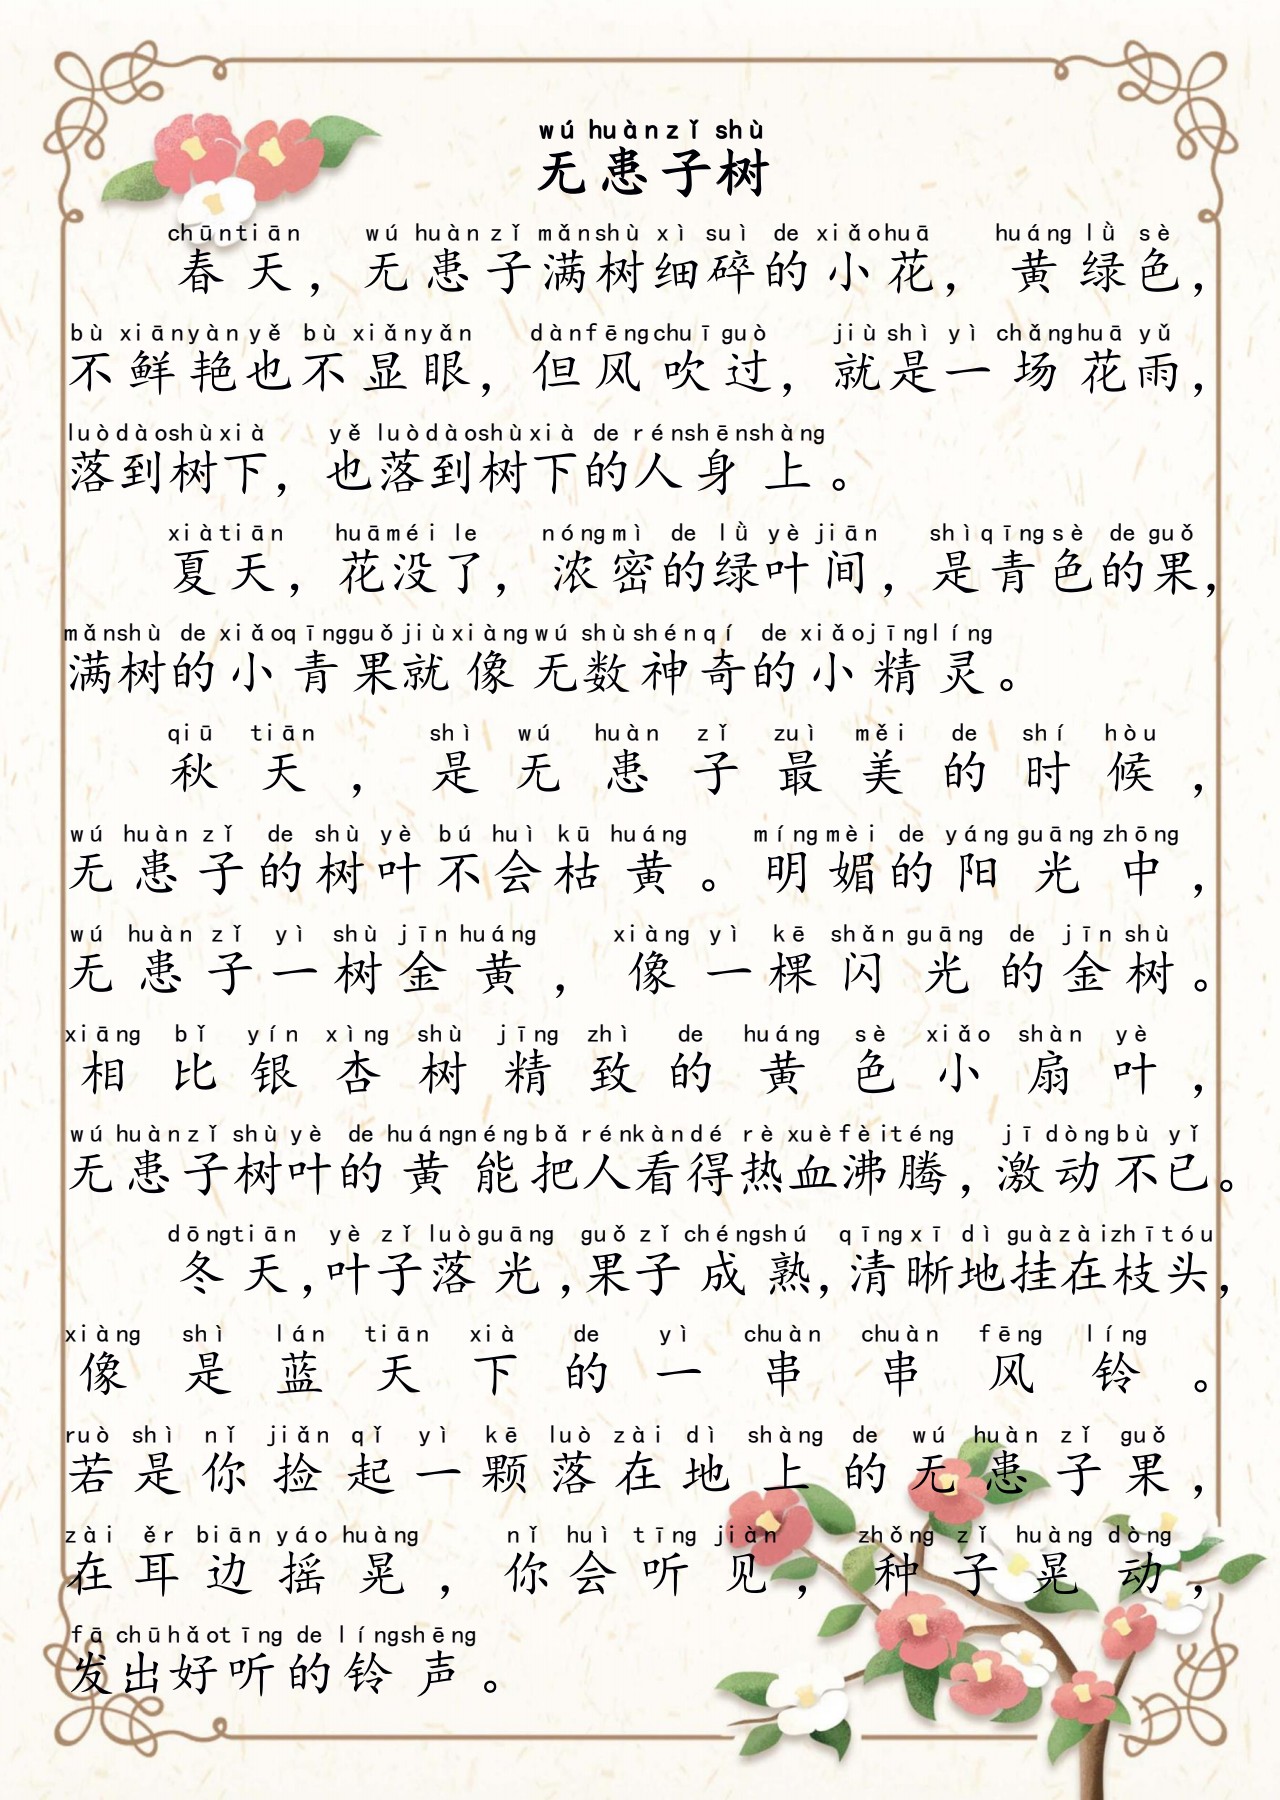 wú huàn zǐ shù
无患子树
chūntiān wú huàn zǐ mǎnshù xì suì de xiǎohuā huáng lǜ sè
春天，无患子满树细碎的小花，黄绿色，
bù xiānyàn yě bù xiǎnyǎn dànfēngchuīguò jiù shì yì chǎnghuā yǔ
不鲜艳也不显眼，但风吹过，就是一场花雨，
luòdàoshùxià yě luòdàoshùxià de rénshēnshàng
落到树下，也落到树下的人身上。
xiàtiān huāméi le nóngmì de lǜ yè jiān shìqīngsè de guǒ
夏天，花没了，浓密的绿叶间，是青色的果，
mǎnshù de xiǎoqīngguǒjiùxiàng wú shùshénqí de xiǎojīnglíng
满树的小青果就像无数神奇的小精灵。
qiū tiān shì wú huàn zǐ zuì měi de shí hòu
秋天，是无患子最美的时候，
wú huàn zǐ de shù yè bú huì kū huáng míng mèi de yáng guāng zhōng
无患子的树叶不会枯黄。明媚的阳光中，
wú huàn zǐ yì shù jīn huáng xiàng yì kē shǎn guāng de jīn shù
无患子一树金黄，像一棵闪光的金树。
xiāng bǐ yín xìng shù jīng zhì de huáng sè xiǎo shàn yè
相比银杏树精致的黄色小扇叶，
wú huàn zǐ shù yè de huángnéngbǎ rénkàndé rè xuèfèiténg jī dòngbù yǐ
无患子树叶的黄能把人看得热血沸腾，激动不已。
dōngtiān yè zǐ luòguāng guǒ zǐ chéngshú qīngxī dì guàzàizhītóu
冬天，叶子落光，果子成熟，清晰地挂在枝头，
xiàng shì lán tiān xià de yì chuàn chuàn fēng líng
像是蓝天下的一串串风铃。
ruò shì nǐ jiǎn qǐ yì kē luò zài dì shàng de wú huàn zǐ guǒ
若是你捡起一颗落在地上的无患子果，
zài ěr biān yáo huàng nǐ huì tīng jiàn zhǒng zǐ huàng dòng
在耳边摇晃，你会听见，种子晃动，
fā chūhǎotīng de língshēng
发出好听的铃声。